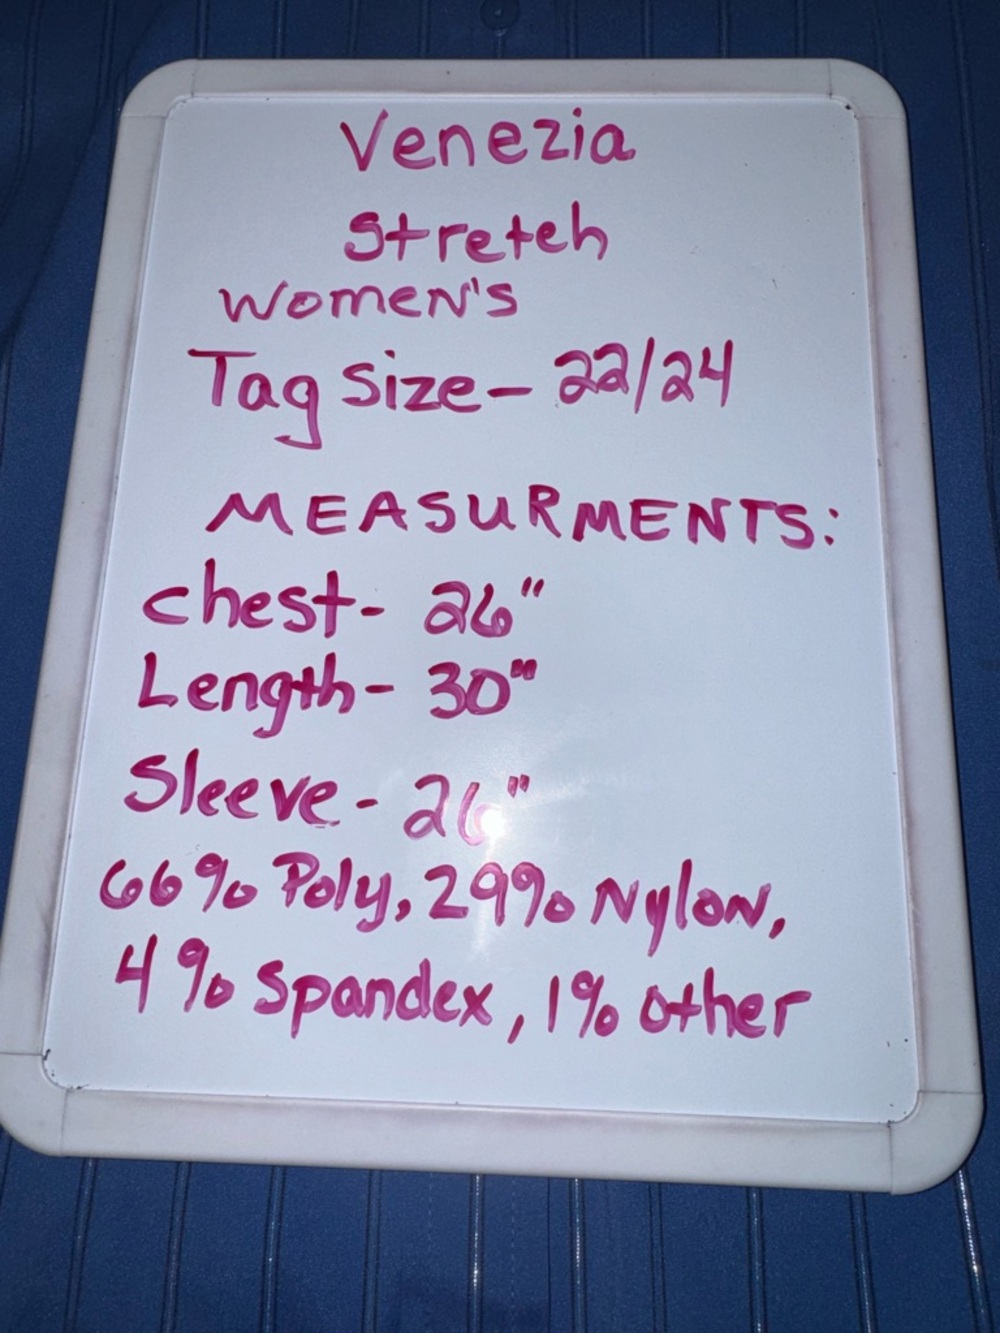 Venezia
Stretch
Women's
Tag Size- 22/24
MEASURMENTS:
Chest- 26"
Length- 30"
Sleeve- 26"
66% Poly, 29% Nylon,
4% Spandex, 1% other